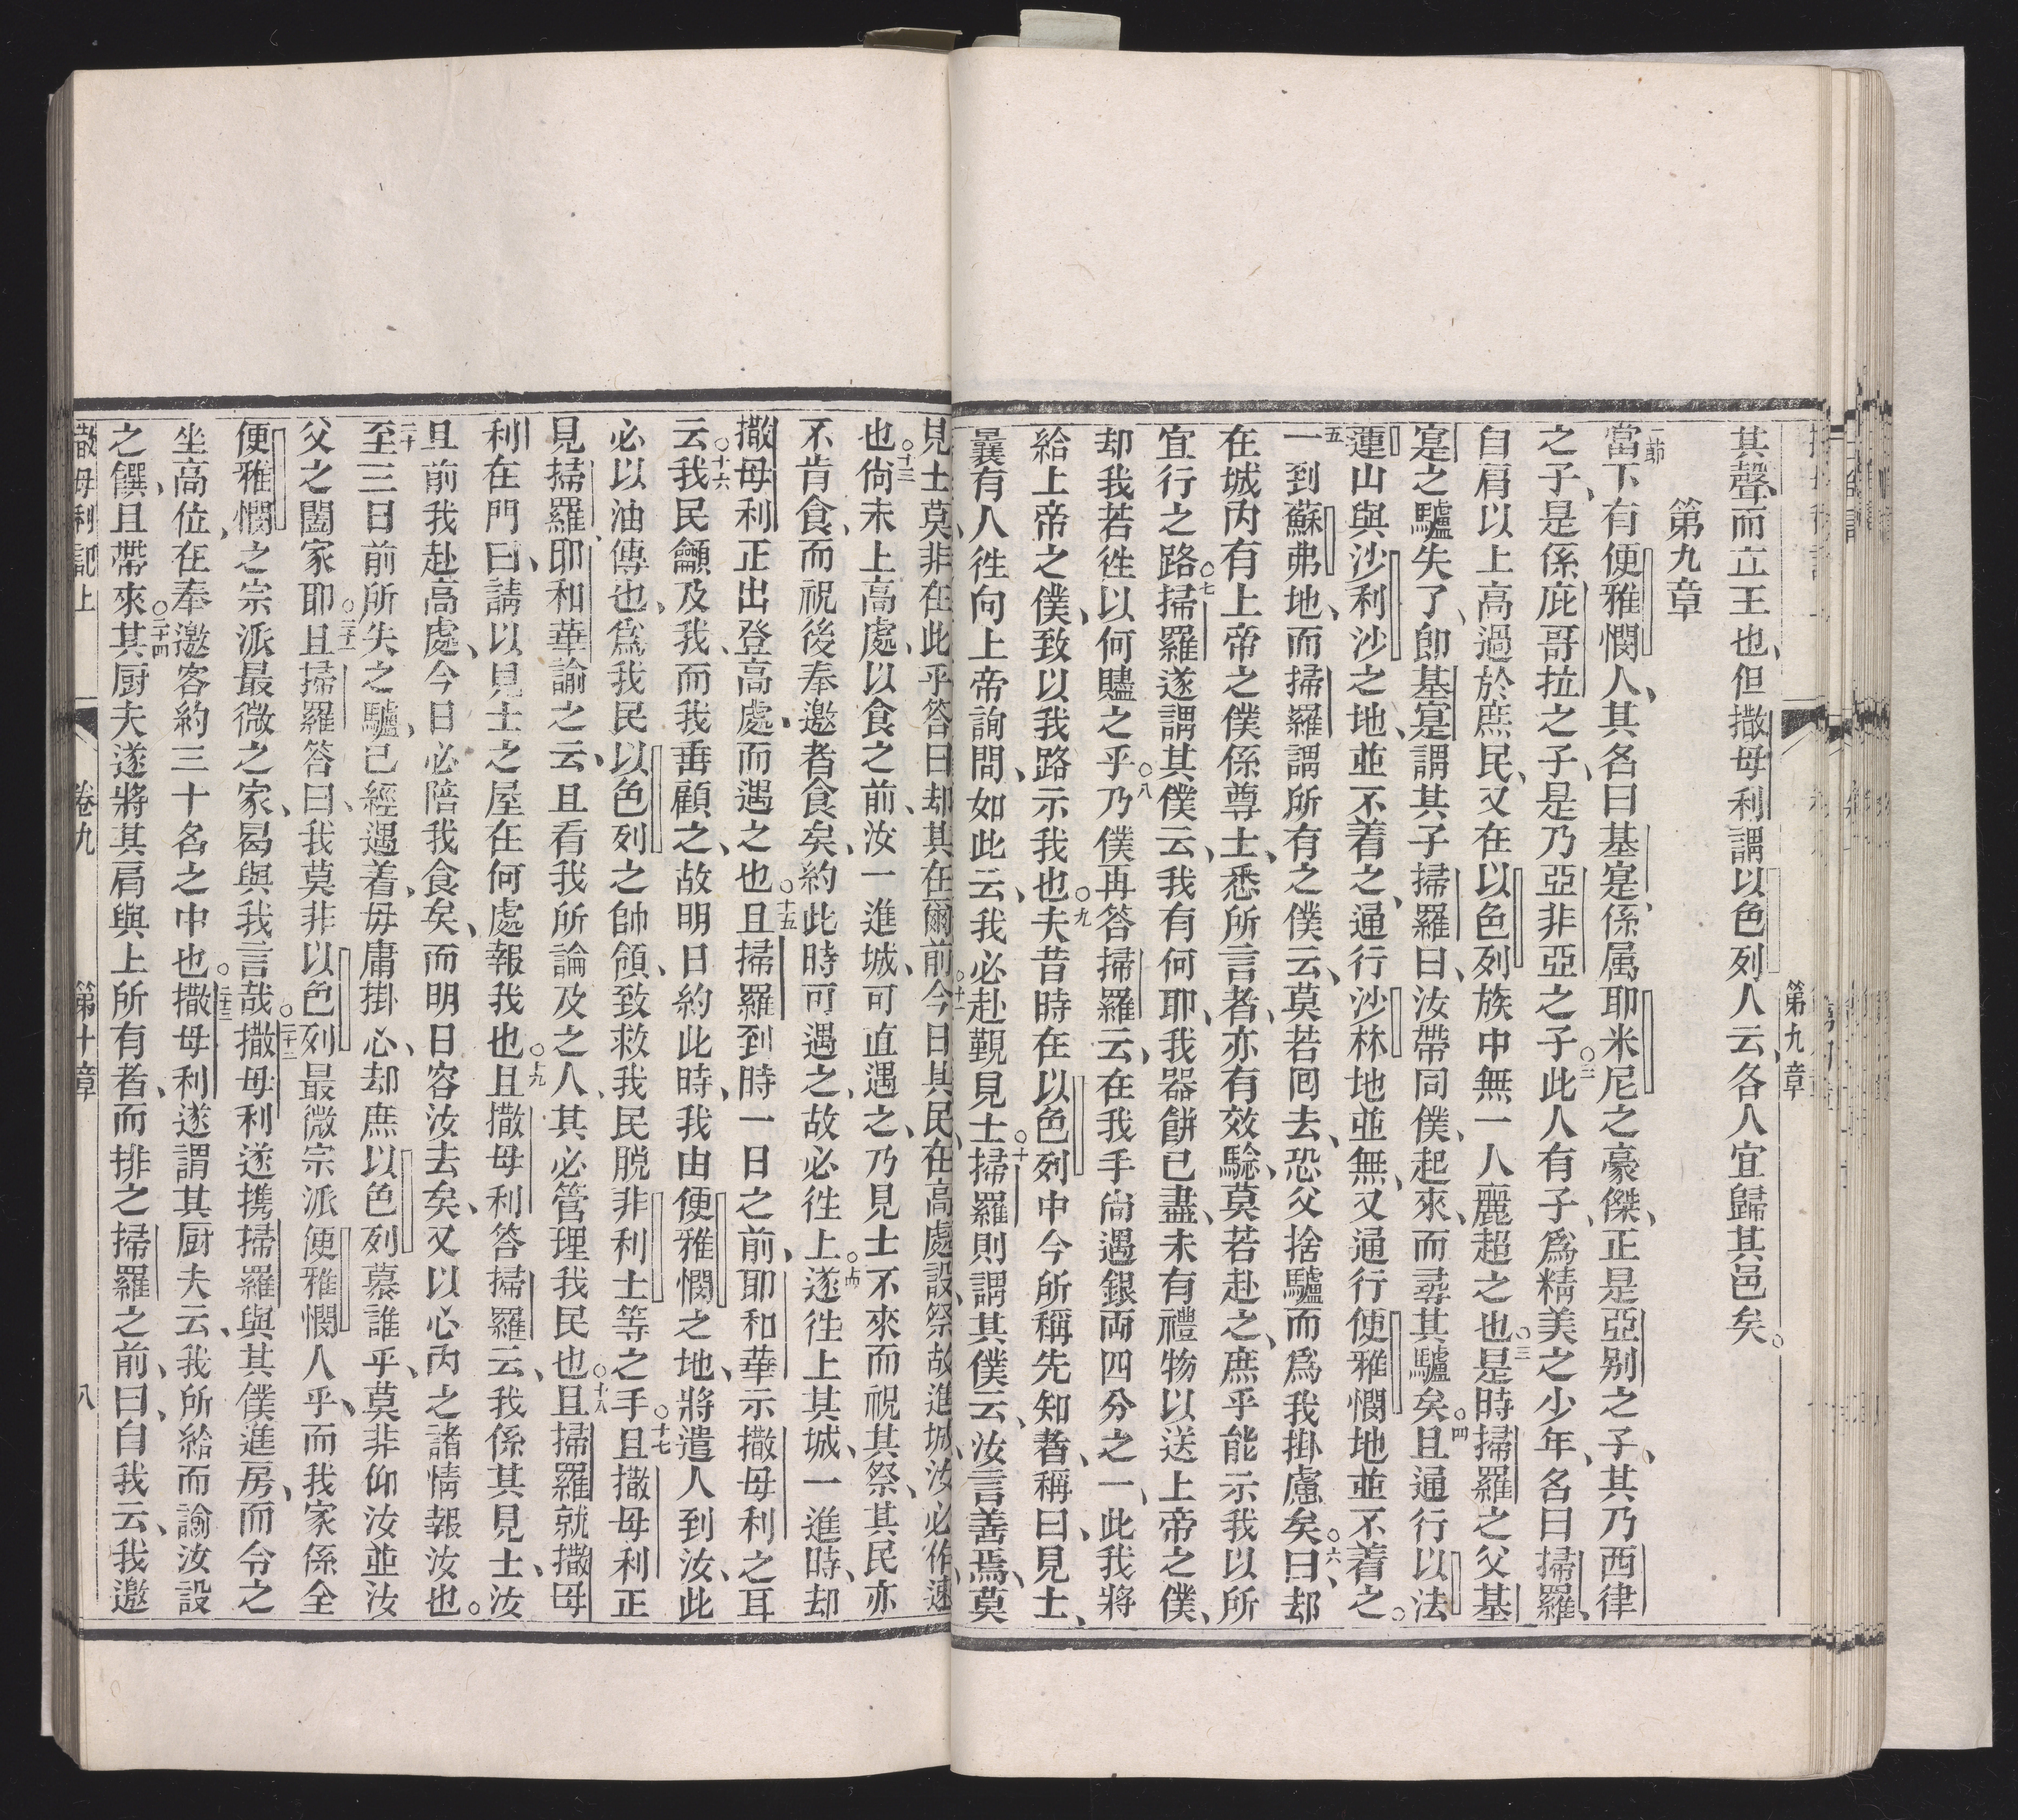 第九章
其聲、而立王也、但撒母利謂以色列人云、各人宜歸其邑矣。
第九章
一節當下有便雅憫人、其名曰基寔、係属耶米尼之豪傑、正是亞别之子。其乃西律
之子、是係庇哥拉之子、是乃亞非亞之子○二此人有子、爲精美之少年、名曰掃羅、
自肩以上高過於庶民、又在以色列族中無一人麗超之也○三是時掃羅之父基
寔之驢失了、卽基寔謂其子掃羅曰、汝帶同僕、起來、而尋其驢矣○四且通行以法
蓮山與沙利沙之地、並不着之、通行沙林地並無、又通行便雅憫地並不着之。
五一到蘇弗地、而掃羅謂所有之僕云、莫若囘去、恐父捨驢而爲我掛慮矣○六曰、却
在城内有上帝之僕係尊士、悉所言者、亦有效騐、莫若赴之、庶乎能示我以所
宜行之路○七掃羅遂謂其僕云、我有何耶、我器餅已盡、未有禮物以送上帝之僕、
却我若徃以何贐之乎○八乃僕再答掃羅云、在我手尙遇銀両四分之一、此我將
給上帝之僕、致以我路示我也○九夫昔時在以色列中今所稱先知者、稱曰、見士、
曩有人徃向上帝詢問、如此云、我必赴覲見士○十掃羅則謂其僕云、汝言善焉、莫
見士莫非在此乎答曰却其在爾前○十二今日其民、在高處設祭、故進城、汝必作速
也○十三尙未上高處、以食之前、汝一進城、可直遇之、乃見士不來而祝其祭、其民亦
不肯食、而祝後奉邀者食矣、約此時可遇之、故必徃上○十四遂徃上其城、一進時、却
撒母利正出登高處、而遇之也○十五且掃羅到時一日之前、耶和華示撒母利之耳
云○十六我民籲及我、而我垂顧之、故明日約此時、我由便雅憫之地、將遣人到汝、此
必以油傳也、爲我民以色列之帥領、致救我民脱非利士等之手○十七且撒母利正
見掃羅、耶和華諭之云、且看我所論及之人、其必管理我民也○十八且掃羅就撒母
利在門曰、請以見士之屋在何處報我也○十九且撒母利答掃羅云、我係其見士、汝
且前我赴高處、今日必陪我食矣、而明日容汝去矣、又以心内之諸情報汝也。
二十至三日前所失之驢、已經遇着、毋庸掛心、却庶以色列慕誰乎、莫非仰汝並汝
父之闔家耶○二十一且掃羅答曰、我莫非以色列最微宗派便雅憫人乎、而我家係全
便雅憫之宗派最微之家、曷與我言哉○二十二撒母利遂携掃羅與其僕進房、而令之
坐高位、在奉邀客約三十名之中也○二十三撒母利遂謂其厨夫云、我所給而諭汝設
之饌、且帶來○二十四其厨夫遂將其肩與上所有者、而排之掃羅之前、曰、自我云、我邀
撒母利記上 卷九 第十章 八